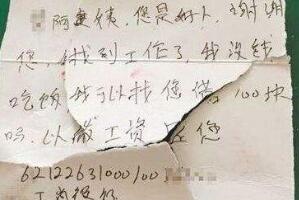 阿建姨，您是好人，谢谢
您，我找到工作了，我没钱
吃饭 我可以找您借100块
吗，以后工资 还您
62122631000100
工资